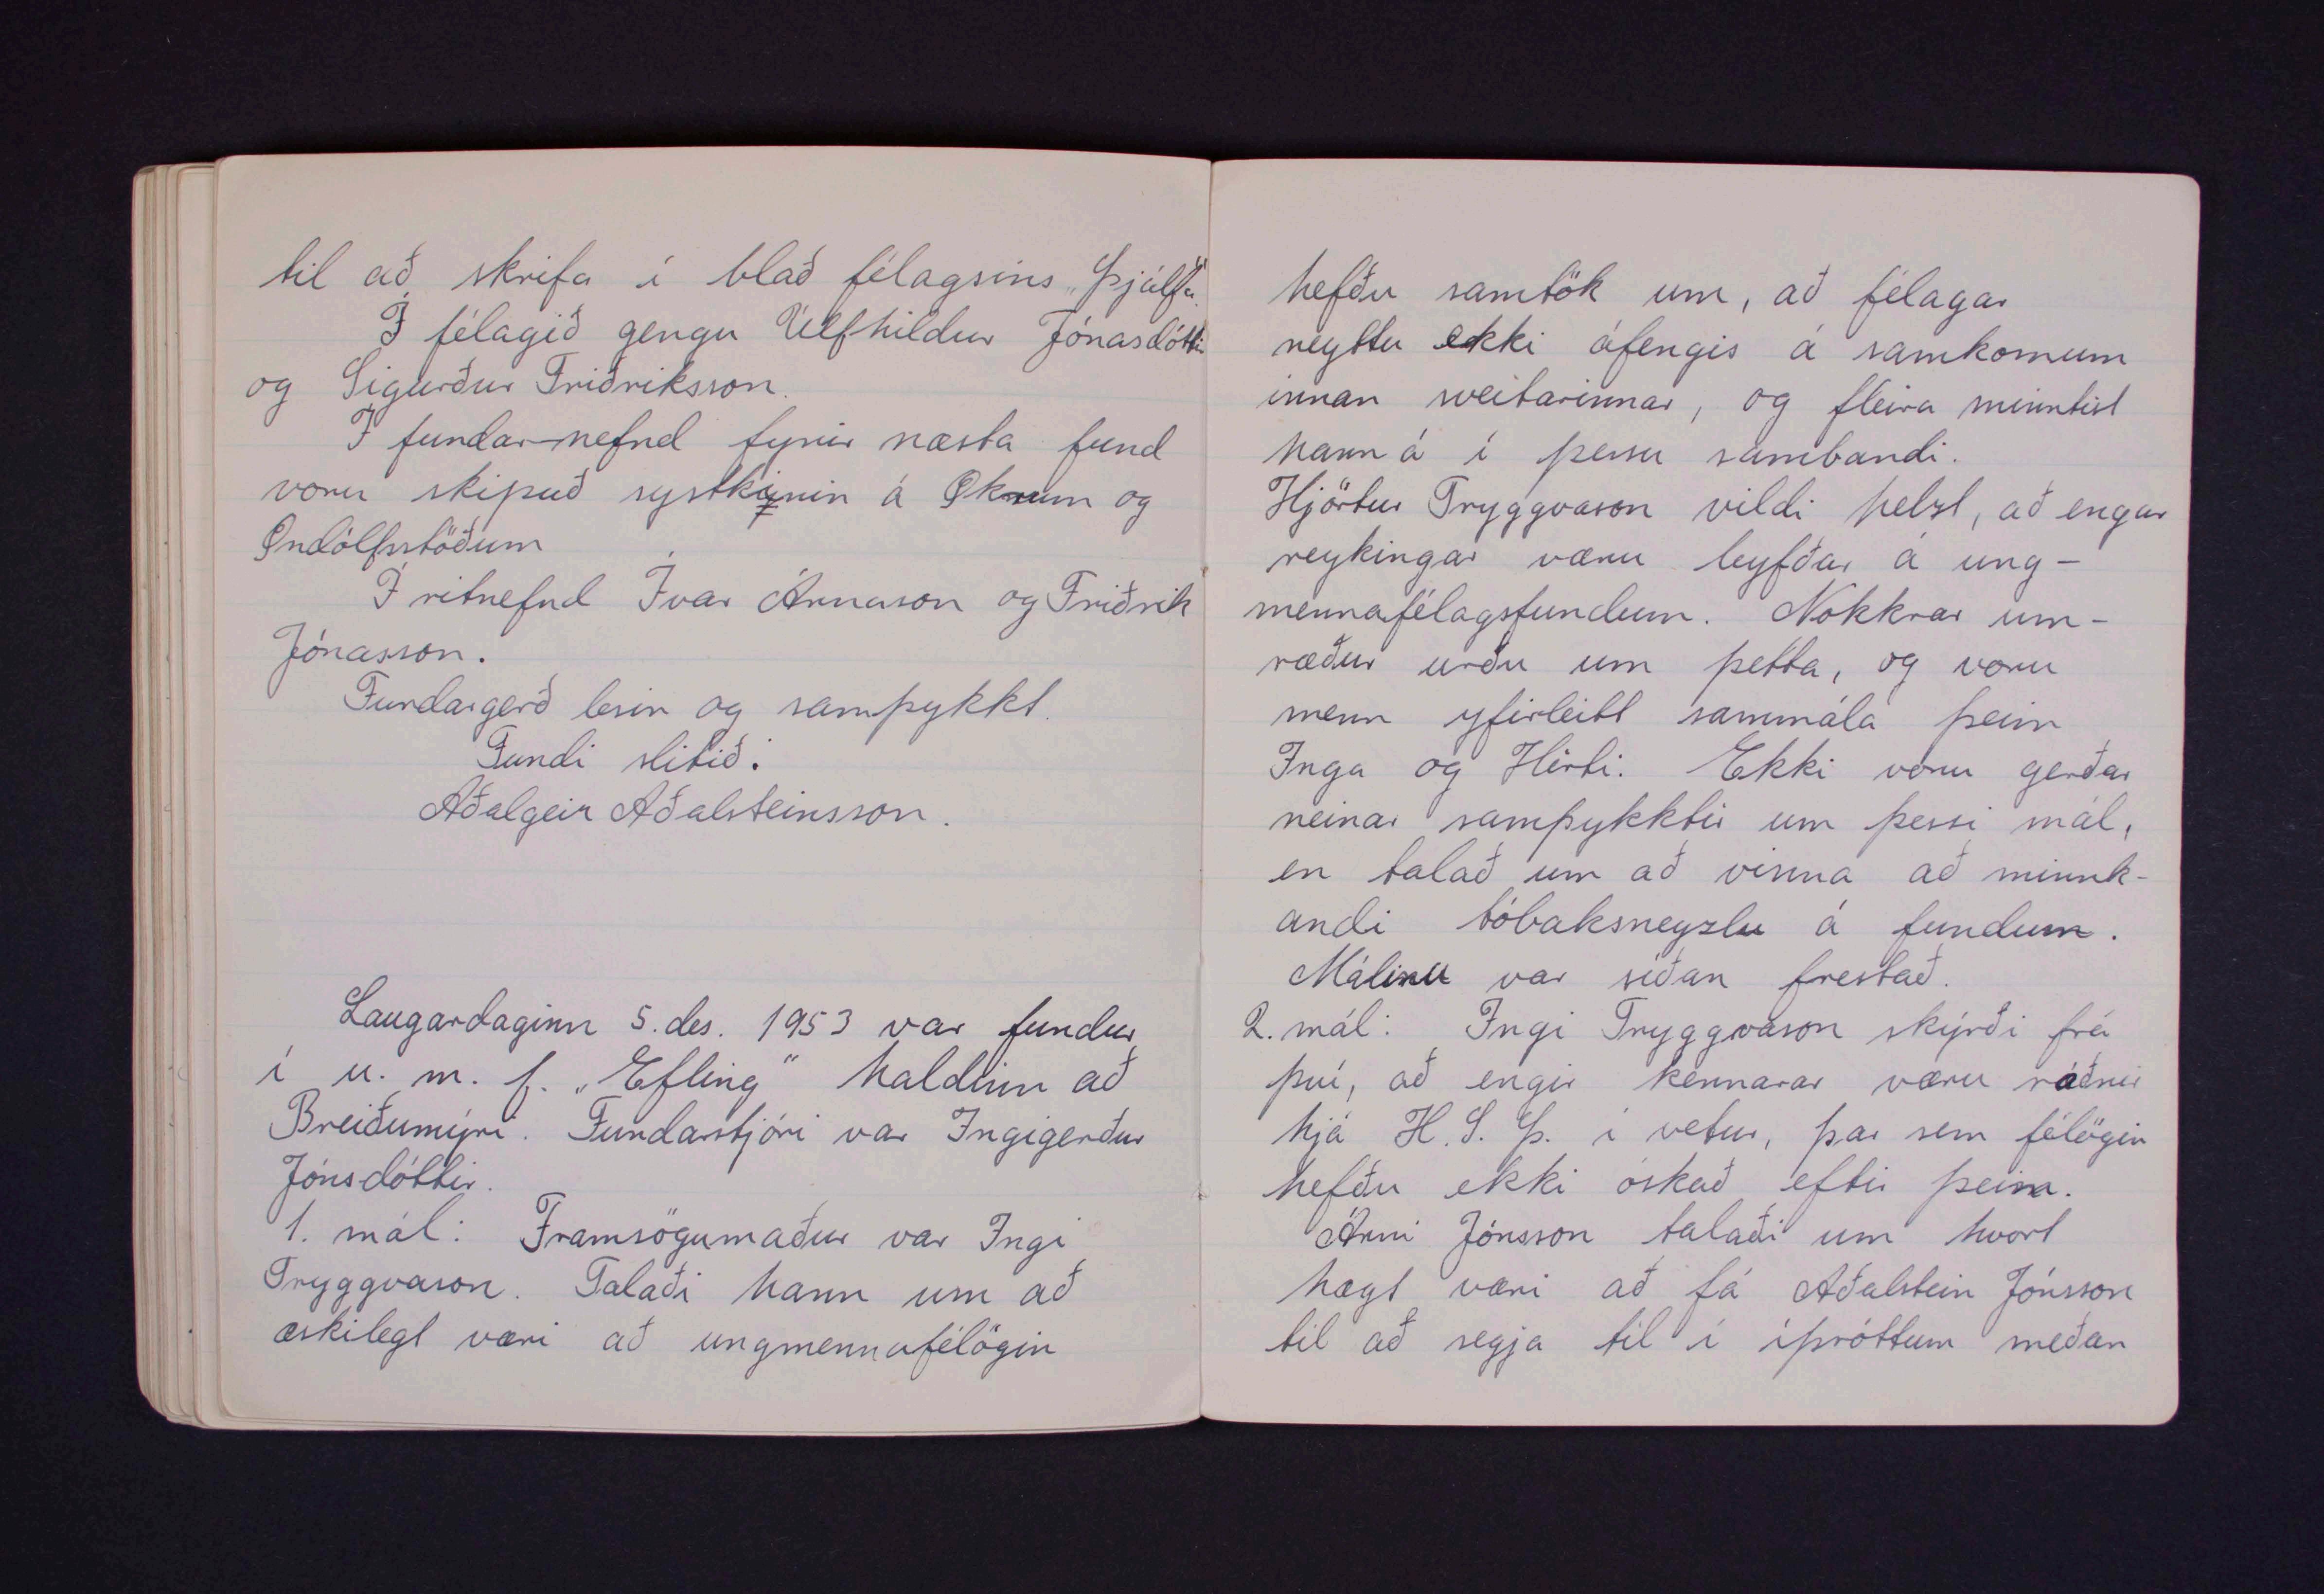 til að skrifa í blað félagsins „Þjálfa".
Í félagið gengu Úlfhildur Jónasdóttir
og Sigurður Friðriksson.
Í fundar-nefnd fyrir næsta fund
voru skipuð systkinin á Ökrum og
Öndólfsstöðum
Í ritnefnd Ívar Árnason og Friðrik
Jónasson.
Fundargerð lesin og samþykkt.
Fundi slitið.
Aðalgeir Aðalsteinsson.
Laugardaginn 5. des. 1953 var fundur
í u. m. f. „Efling" haldinn að
Breiðumýri. Fundarstjóri var Ingigerður
Jónsdóttir.
1. mál: Framsögumaður var Ingi
Tryggvason. Talaði hann um að
æskilegt væri að ungmennafélögin
hefðu samtök um, að félagar
neyttu ekki áfengis á samkomum
innan sveitarinnar, og fleira minntist
hann á í þessu sambandi.
Hjörtur Tryggvason vildi helzt, að engar
reykingar væru leyfðar á ung-
mennafélagsfundum. Nokkrar um-
ræður urðu um þetta, og voru
menn yfirleitt sammála þeim
Inga og Hirti. Ekki voru gerðar
neinar samþykktir um þessi mál,
en talað um að vinna að minnk-
andi tóbaksneyzlu á fundum.
Málinu var síðan frestað.
2. mál: Ingi Tryggvason skýrði frá
því, að engir kennarar væru ráðnir
hjá H. S. Þ. í vetur, þar sem félögin
hefðu ekki óskað eftir þeim.
Árni Jónsson talaði um hvort
hægt væri að fá Aðalstein Jónsson
til að segja til í íþróttum meðan